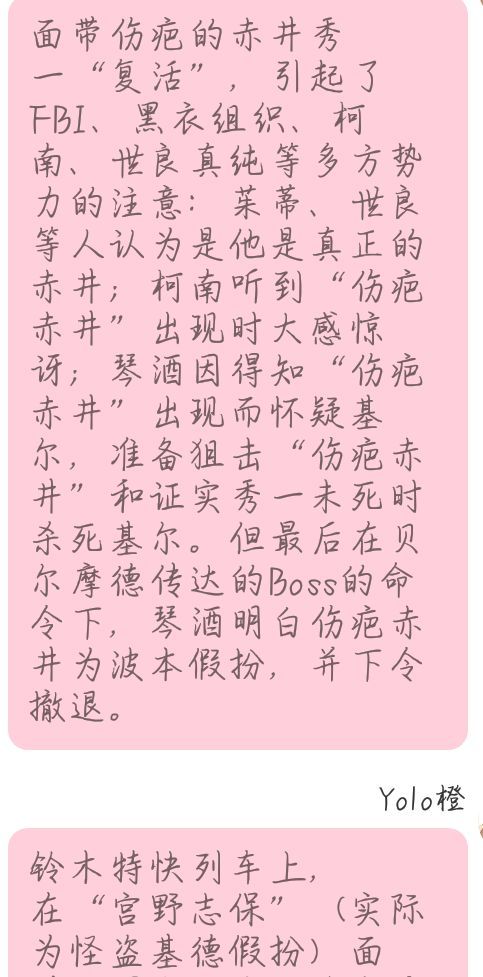 面带伤疤的赤井秀
一“复活”，引起了
FBI、黑衣组织、柯
南、世良真纯等多方势
力的注意：茱蒂、世良
等人认为是他是真正的
赤井；柯南听到“伤疤
赤井”出现时大感惊
讶；琴酒因得知“伤疤
赤井”出现而怀疑基
尔，准备狙击“伤疤赤
井”和证实秀一未死时
杀死基尔。但最后在贝
尔摩德传达的Boss的命
令下，琴酒明白伤疤赤
井为波本假扮，并下令
撤退。
Yolo橙
铃木特快列车上，
在“宫野志保”（实际
为怪盗基德假扮）面